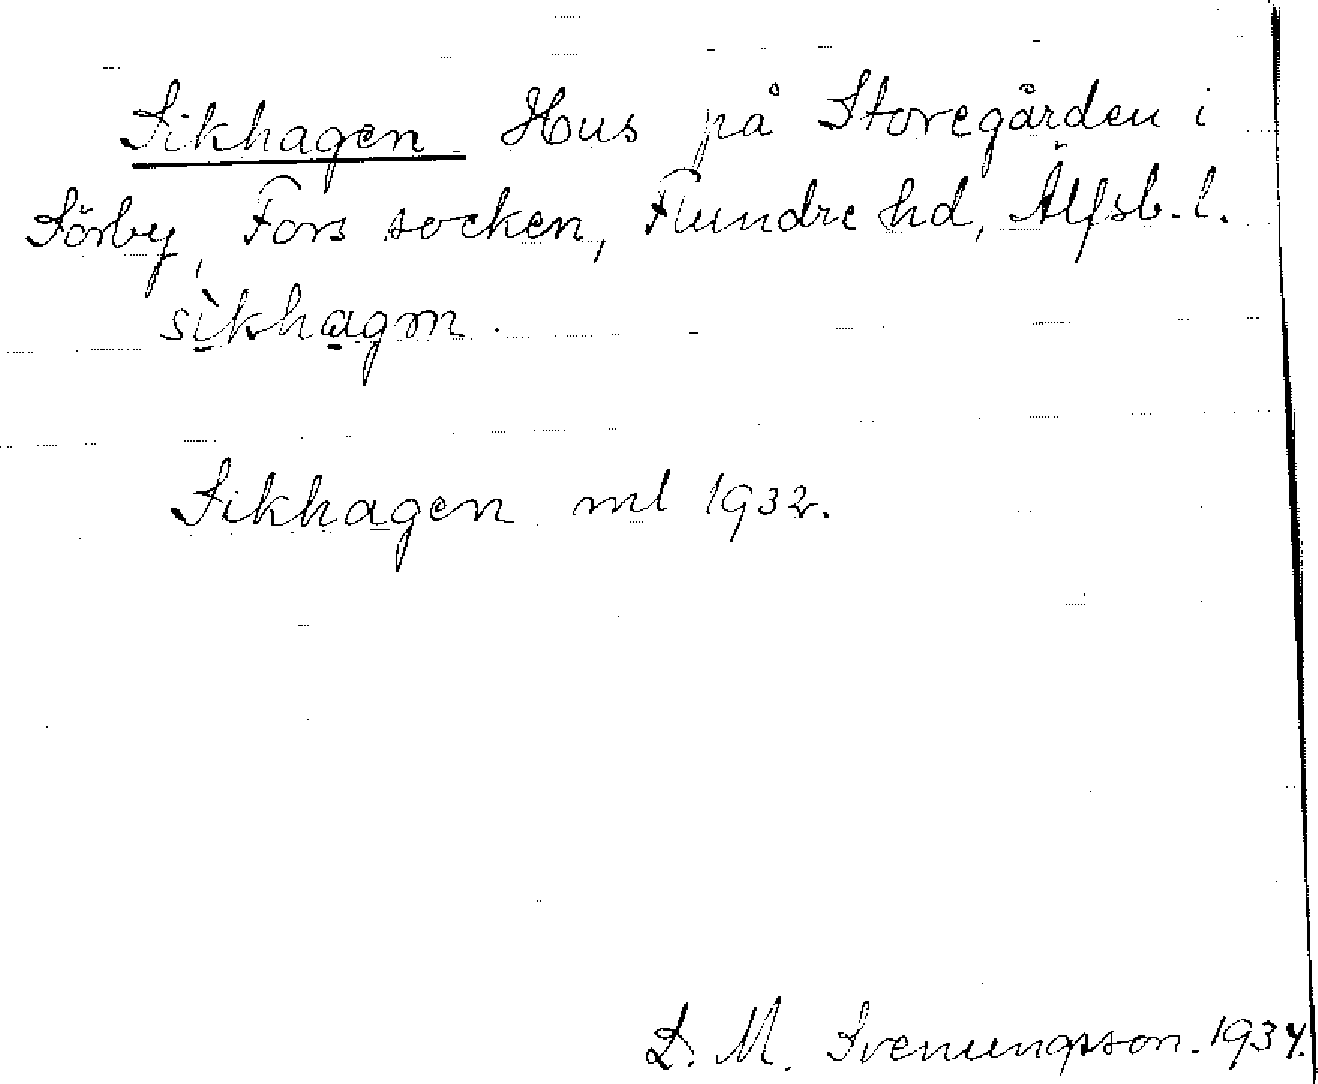 Sikhagen Hus på Storegården i
Sörby, Fors socken, Flundre hd, Älfsb. l.
sìkhagm.
Sikhagen ml 1932.
D. M. Svenungsson. 1934.